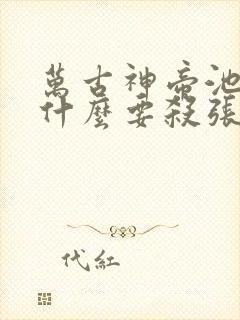 萬古神帝池
什麼要殺張
代紅